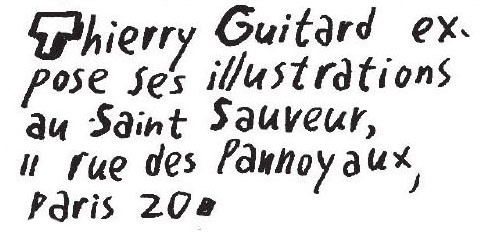 Thierry Guitard ex-
pose ses illustrations
au Saint Sauveur,
11 rue des Pannoyaux,
Paris 20.